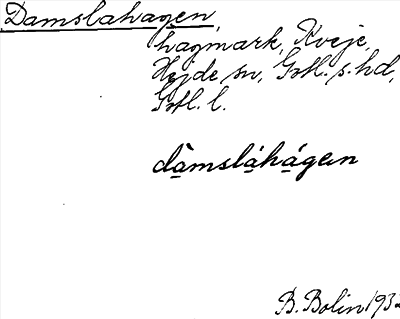 Damslahagen,
hagmark, Kveje,
Hejde sn, Gotl. s. hd,
Gotl. l.
dàmsláhágen
B. Bolin 193